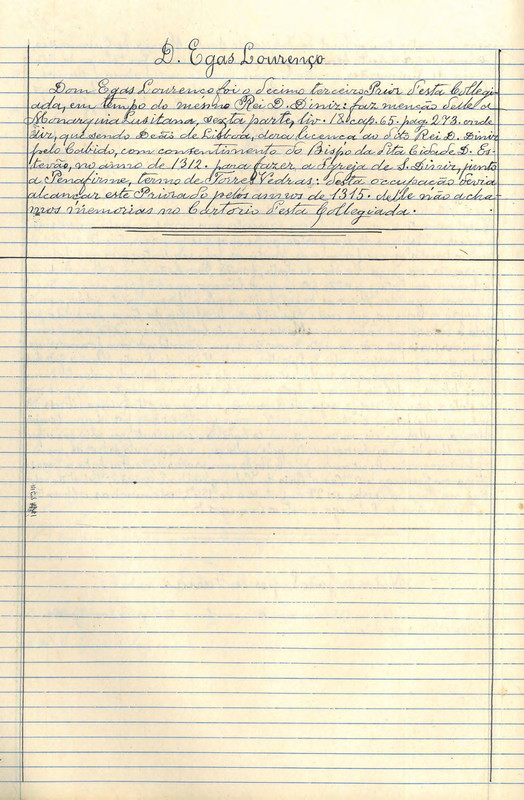 D. Egas Lourenço
Dom Egas Lourenço foi o decimo terceiro Prior desta Collegi-
ada, em tempo do mesmo Rei D. Diniz: faz menção delle a
Monarquia Lusitana, sexta parte, liv. 18 cap. 65. pag 273. onde
diz, que sendo Deão de Lisboa, dera licença ao dito Rei D. Diniz
pelo Cabido, com consentimento do Bispo da dita Cidade D. Es-
tevão, no anno de 1312. para fazer a Igreja de S. Diniz, junto
a Penafirme, termo de Torres Vedras: desta occupação devia
alcançar este Priorado pelos annos de 1315. delle não acha-
mos memorias no Cartorio desta Collegiada.